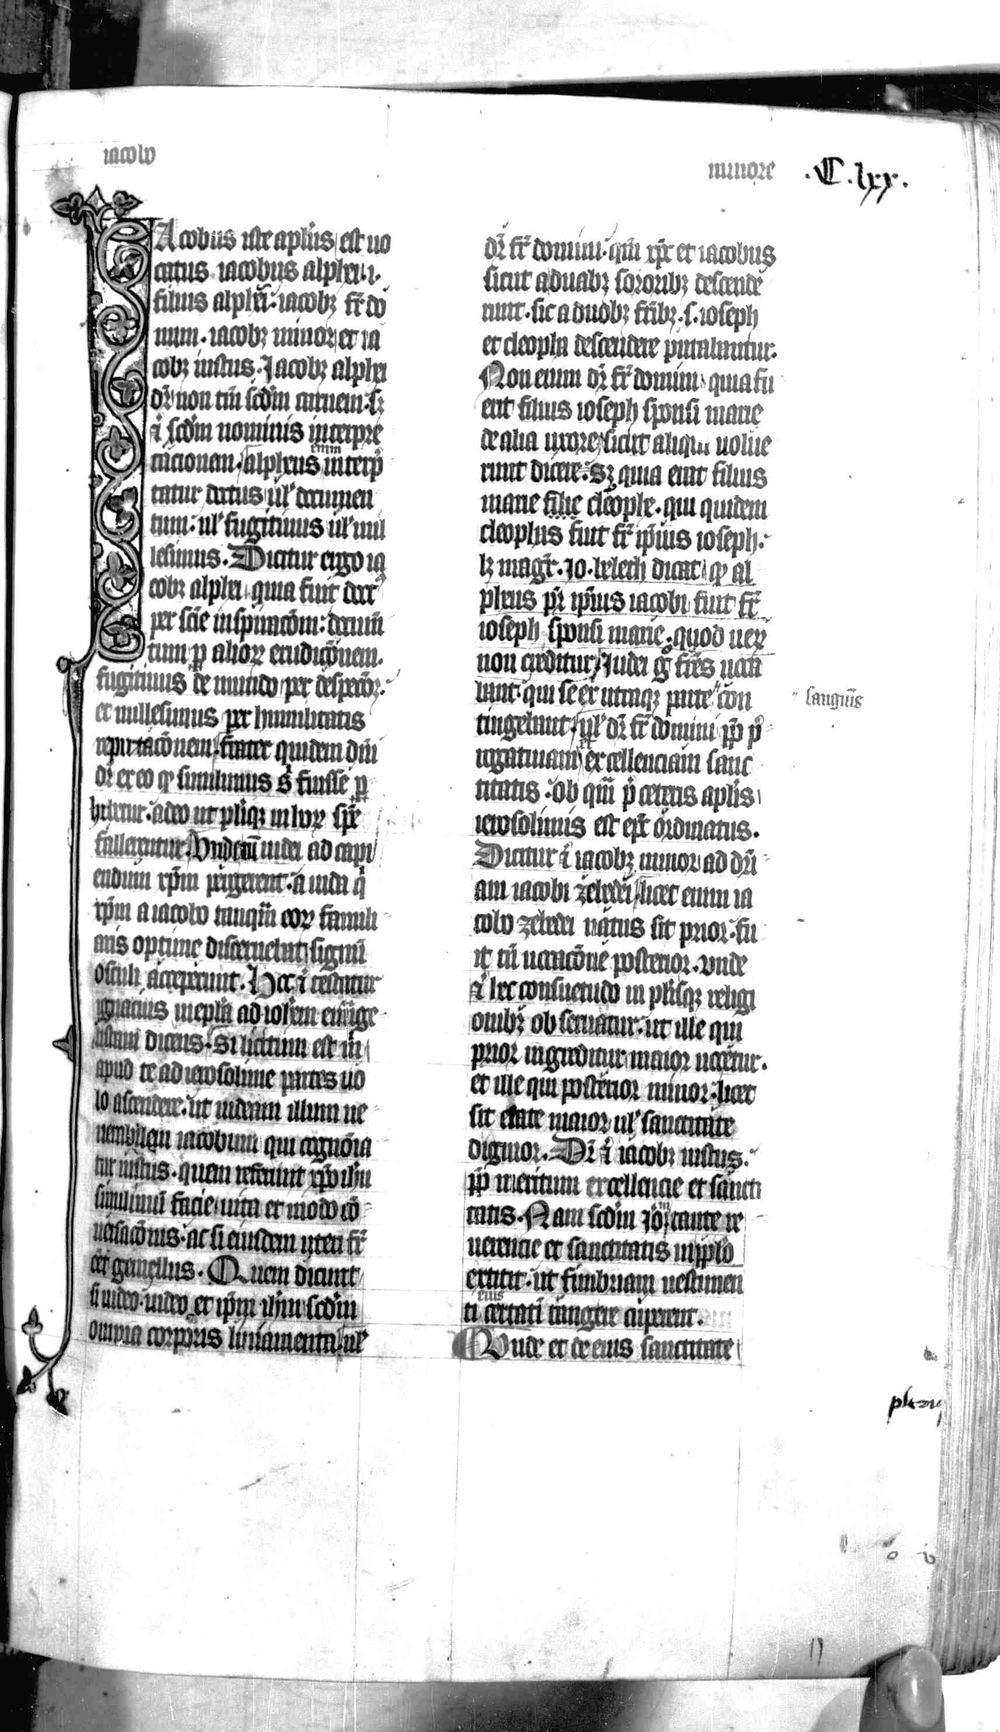 iacobo
minore .C.lxx.
IAcobus iste aplus est uo
catus iacobus alphei .i.
filius alphei. iacobz fr do
mini. iacobz minor et ia
cobz iustus. Iacobz alphei
dr non tm scdm carnem. sz
i scdm nominis interpre
tacionem. alpheus enim interp
tatur doctus ul documen
tum. ul fugitiuus ul mil
lesimus. Dicitur ergo ia
cobz alphei quia fuit doct
per scie inspiracom. documen
tum p alior erudicionem.
fugitiuus de mundo per despectum.
et millesimus per humilitatis
reputacionem. frater quidem dni
dr ex eo q simillimus s fuisse p
hibetur. adeo ut pliqz in hor spe
fallerentur. Vnde cum iudei ad capi
endum xpm pergerent. a iuda q
xpm a iacobo tanqm eor famili
aris optime discernebat signum
osculi acceperunt. Hoc i testatur
ignatius in epla ad iohem euuange
listam dicens. Si licitum est m
apud te ad ierosolime partes uo
lo ascendere. ut uideam illum ue
nerabilem iacobum qui cognomina
tur iustus. quem referunt xpo ihu
simillimum facie uita et modo co
uersacionis. ac si eiusdem uteri fr
eet gemellus. Quem dicunt
si uideo. uideo et ipm ihm scdm
omnia corporis liniamenta. uel
dr fr domini. qm xpc et iacobus
sicut a duabz sororibz descende
runt. sic a duobz fribz .s. ioseph
et cleopha descendere putabantur.
Non enim dr fr domini quia fu
erit filius ioseph sponsi marie
de alia uxore sicut aliqui uolue
runt dicere. sz quia erat filius
marie filie cleophe. qui quidem
cleophas fuit fr ipius ioseph.
lz magr. io. beleth dicat q al
pheus pr ipius iacobi fuit fr
ioseph sponsi marie. quod uer
non creditur. Iudei g fres uoca
bant qui se ex utraqz parte con
sanguis
tingebant. ul dr fr domini pp p
rogatiuam et excellenciam sanc
titatis. ob qm p ceteris aplis
ierosolimis est eps ordinatus.
Dicitur i iacobz minor ad dri
am iacobi zebedei. licet enim ia
cobo zebedei natus sit prior. fu
it tn uocacone posterior. vnde
i hec consuetudo in plisqz religi
onibz obseruatur. ut ille qui
prior ingreditur maior uocetur.
et ille qui posterior minor. licet
sit etate maior ul sanctitate
dignior. Dr i iacobz iustus.
pp meritum excellencie et sancti
tatis. Nam scdm Iom tante re
uerencie et sanctitatis in pplo
extitit. ut fimbriam uestimen
ti eius certatim tangere cuperent.
Vnde et de eius sanctitate